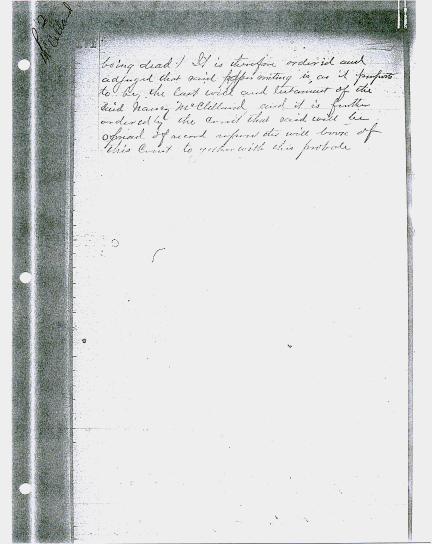 McClelland
being dead! It is therefore ordered and
adjudged that said paper writing is, as it purports
to be, the Last will and testament of the
Said Nancy McClelland and it is further
ordered by the Court that said will be
spread of record upon the will book of
this Court together with this probate